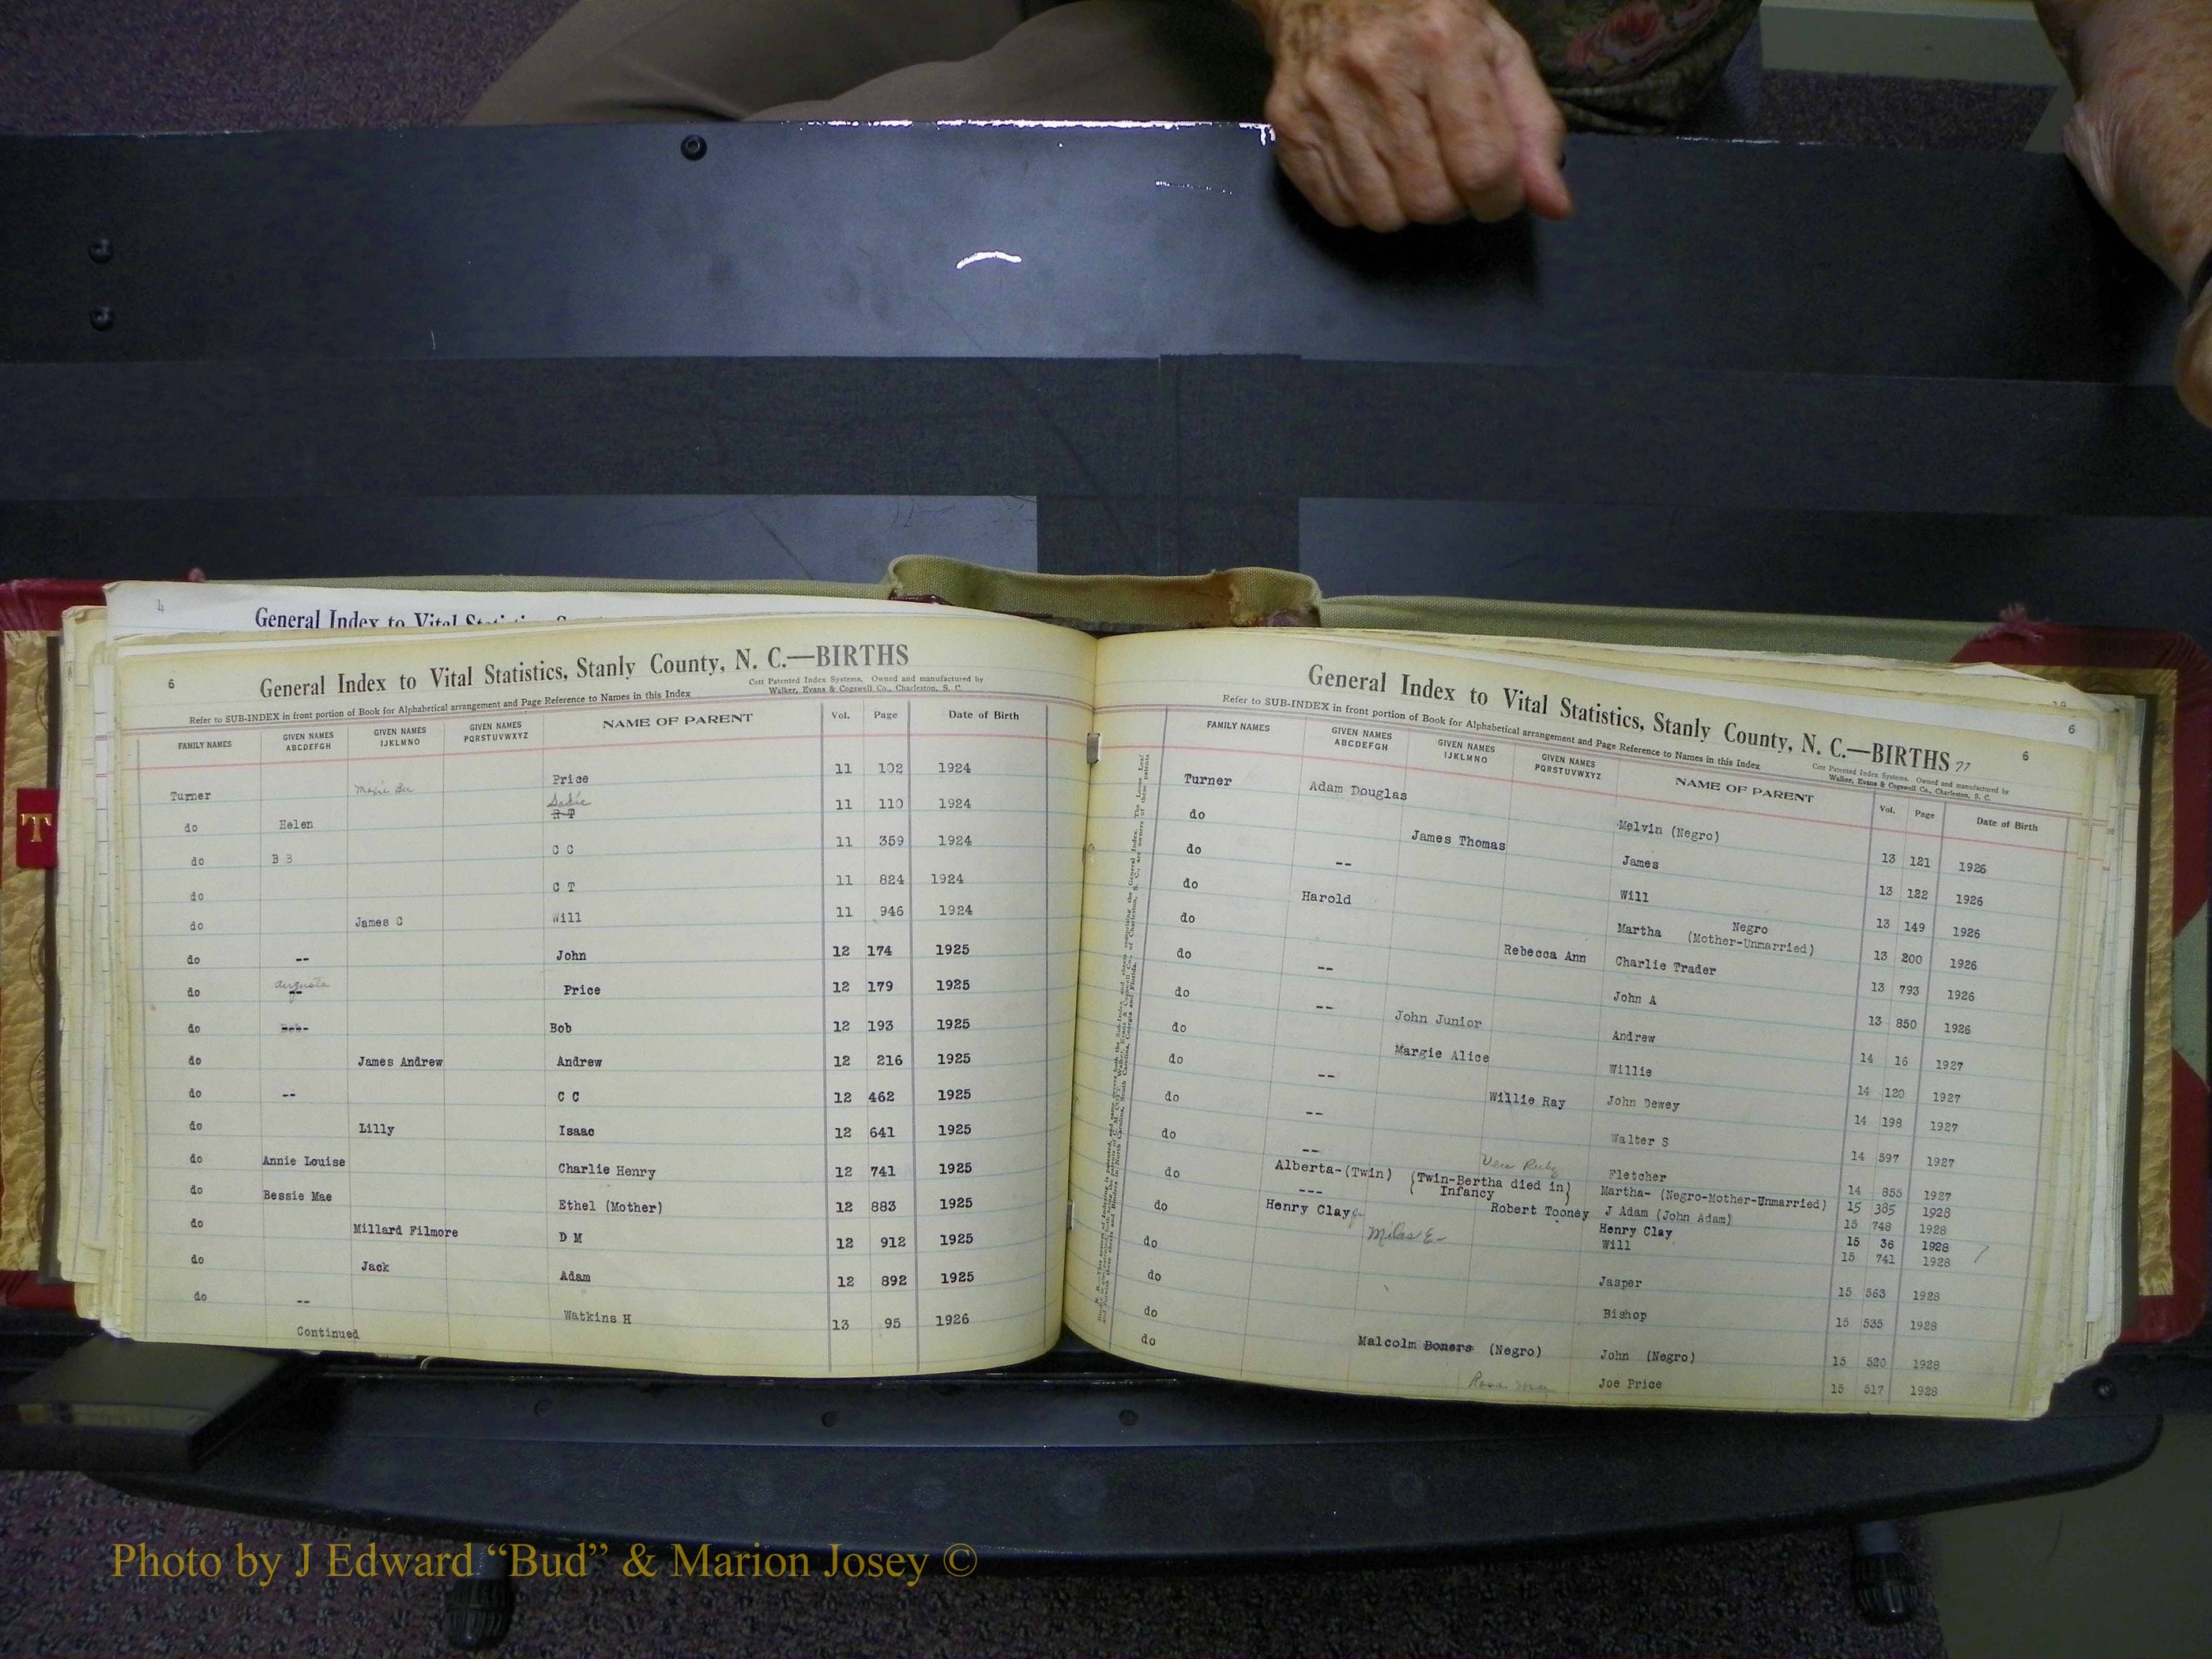 4
General Index to Vital Statistics
6
General Index to Vital Statistics, Stanly County, N. C.—BIRTHS
Cott Patented Index Systems. Owned and manufactured by
Walker, Evans & Cogswell Co., Charleston, S. C.
Refer to SUB-INDEX in front portion of Book for Alphabetical arrangement and Page Reference to Names in this Index
FAMILY NAMES GIVEN NAMES ABCDEFGH GIVEN NAMES IJKLMNO GIVEN NAMES PQRSTUVWXYZ NAME OF PARENT Vol. Page Date of Birth
Turner Price 11 102 1924
do Helen R T 11 110 1924
do B B C C 11 359 1924
do C T 11 824 1924
do James C Will 11 946 1924
do -- John 12 174 1925
do Augusta -- Price 12 179 1925
do Bob 12 193 1925
do James Andrew Andrew 12 216 1925
do -- C C 12 462 1925
do Lilly Isaac 12 641 1925
do Annie Louise Charlie Henry 12 741 1925
do Bessie Mae Ethel (Mother) 12 883 1925
do Millard Filmore D M 12 912 1925
do Jack Adam 12 892 1925
do -- Watkins H 13 95 1926
Continued
T
General Index to Vital Statistics, Stanly County, N. C.—BIRTHS
6
6
Cott Patented Index Systems. Owned and manufactured by
Walker, Evans & Cogswell Co., Charleston, S. C.
Refer to SUB-INDEX in front portion of Book for Alphabetical arrangement and Page Reference to Names in this Index
FAMILY NAMES GIVEN NAMES ABCDEFGH GIVEN NAMES IJKLMNO GIVEN NAMES PQRSTUVWXYZ NAME OF PARENT Vol. Page Date of Birth
Turner Adam Douglas Melvin (Negro) 13 121 1926
do James Thomas James 13 122 1926
do -- Will 13 149 1926
do Harold Martha Negro (Mother-Unmarried) 13 200 1926
do Rebecca Ann Charlie Trader 13 793 1926
do -- John A 13 850 1926
do -- John Junior Andrew 14 16 1927
do Margie Alice Willie 14 120 1927
do -- Willie Ray John Dewey 14 198 1927
do -- Walter S 14 597 1927
do -- Vera Ruby Fletcher 14 855 1927
do Alberta-(Twin) (Twin-Bertha died in Infancy) Martha- (Negro-Mother-Unmarried) 15 385 1928
--- Robert Tooney J Adam (John Adam) 15 748 1928
do Henry Clay Jr Henry Clay 15 36 1928
Miles E- Will 15 741 1928
do Jasper 15 563 1928
do Bishop 15 535 1928
do Malcolm Boners (Negro) John (Negro) 15 520 1928
do Rosa May Joe Price 15 517 1928
Photo by J Edward “Bud” & Marion Josey ©